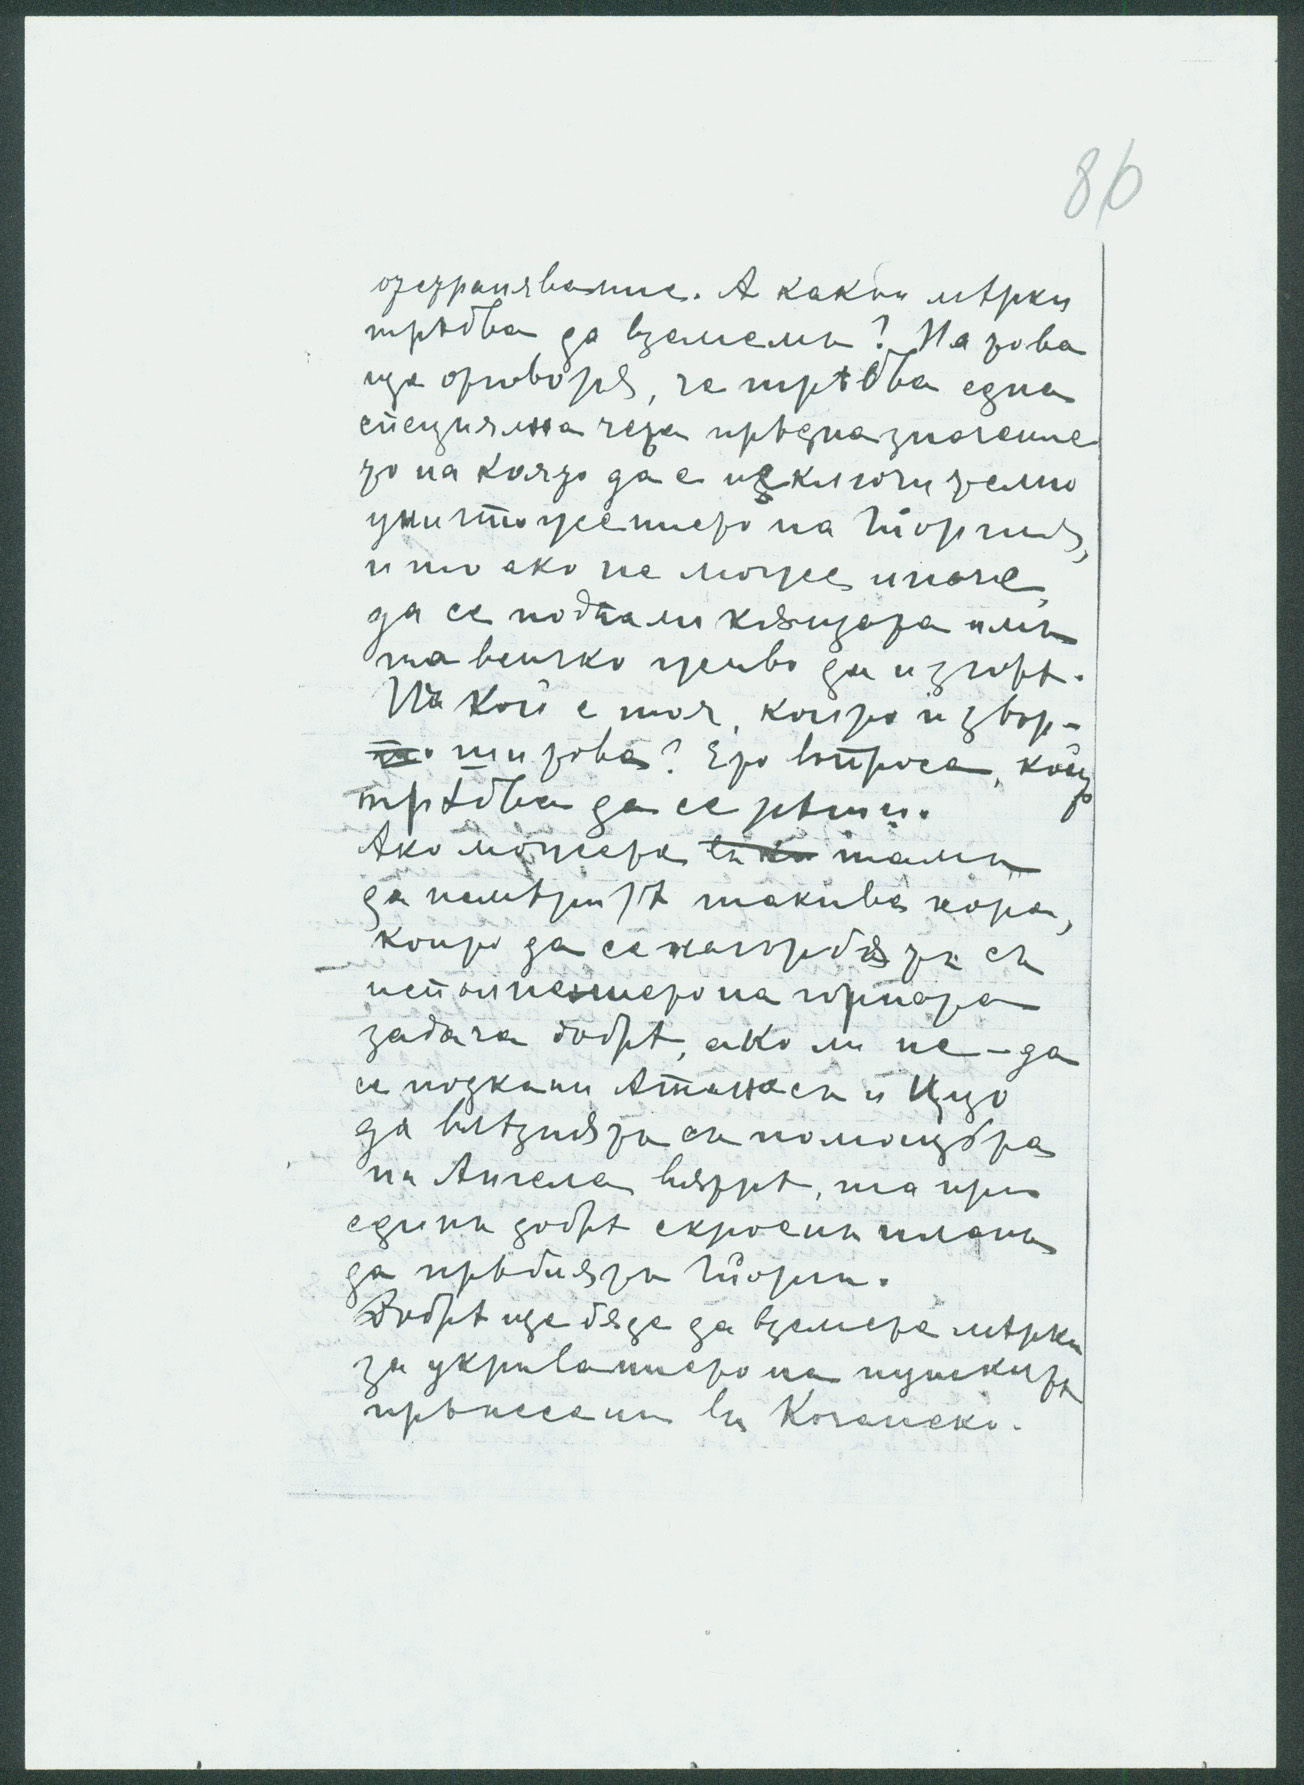 86
отстраняване. А какви мѣрки
трѣбва да вземемъ? На това
ще отговоря, че трѣбва една
специялна чета прѣдназначение
то на която да е исключително
унищожението на Шорпия,
и то ако не може, иначе,
да се подпали кѫщата имъ
та всичко живо да изгоря.
На кой е тоя, който извър-
ши това? Ето въпроса, който
трѣбва да се рѣши.
Ако можете тамъ
да намѣрите такива хора,
които да се нагърбятъ съ
исполнението на горната
задача добрѣ, ако ли не – да
се подкани Атанасъ и Цицо
да влѣзнятъ съ помощьта
на Ангела вѫтрѣ, та при
единъ добрѣ скроенъ планъ
да прѣбиятъ
Добрѣ ще бѫде да вземете мѣрки
за укриванието на пушкитѣ
прѣнесени въ Кочанско.